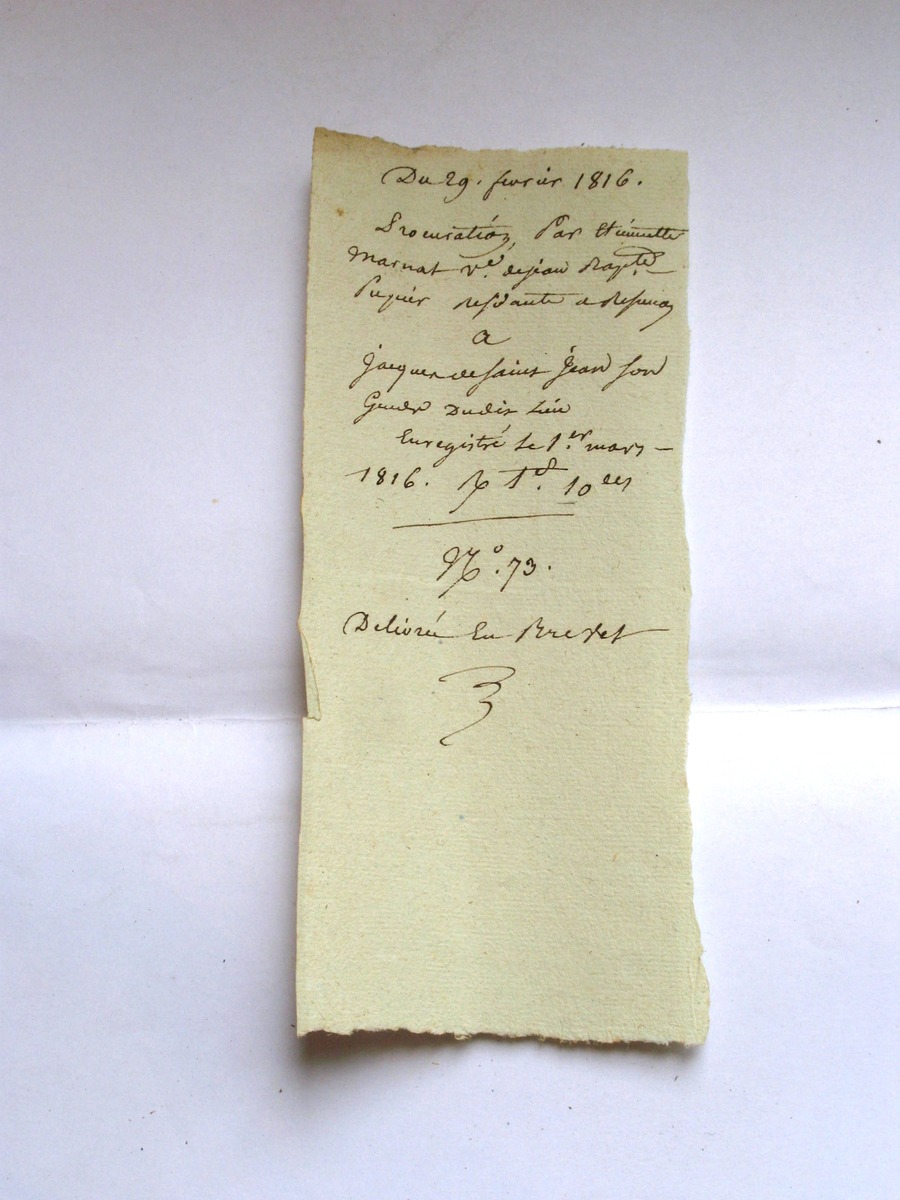 Du 29. fevrier 1816.
Procuration, Par Etiennette
Marnat v.e de jean Bapte.
Pupier residante a
a
jacques de saint jean son
Gendre dudit Lieu
Enregistré le 1.er mars
1816. R 1 10
N.o 73.
Delivrée En Brevet